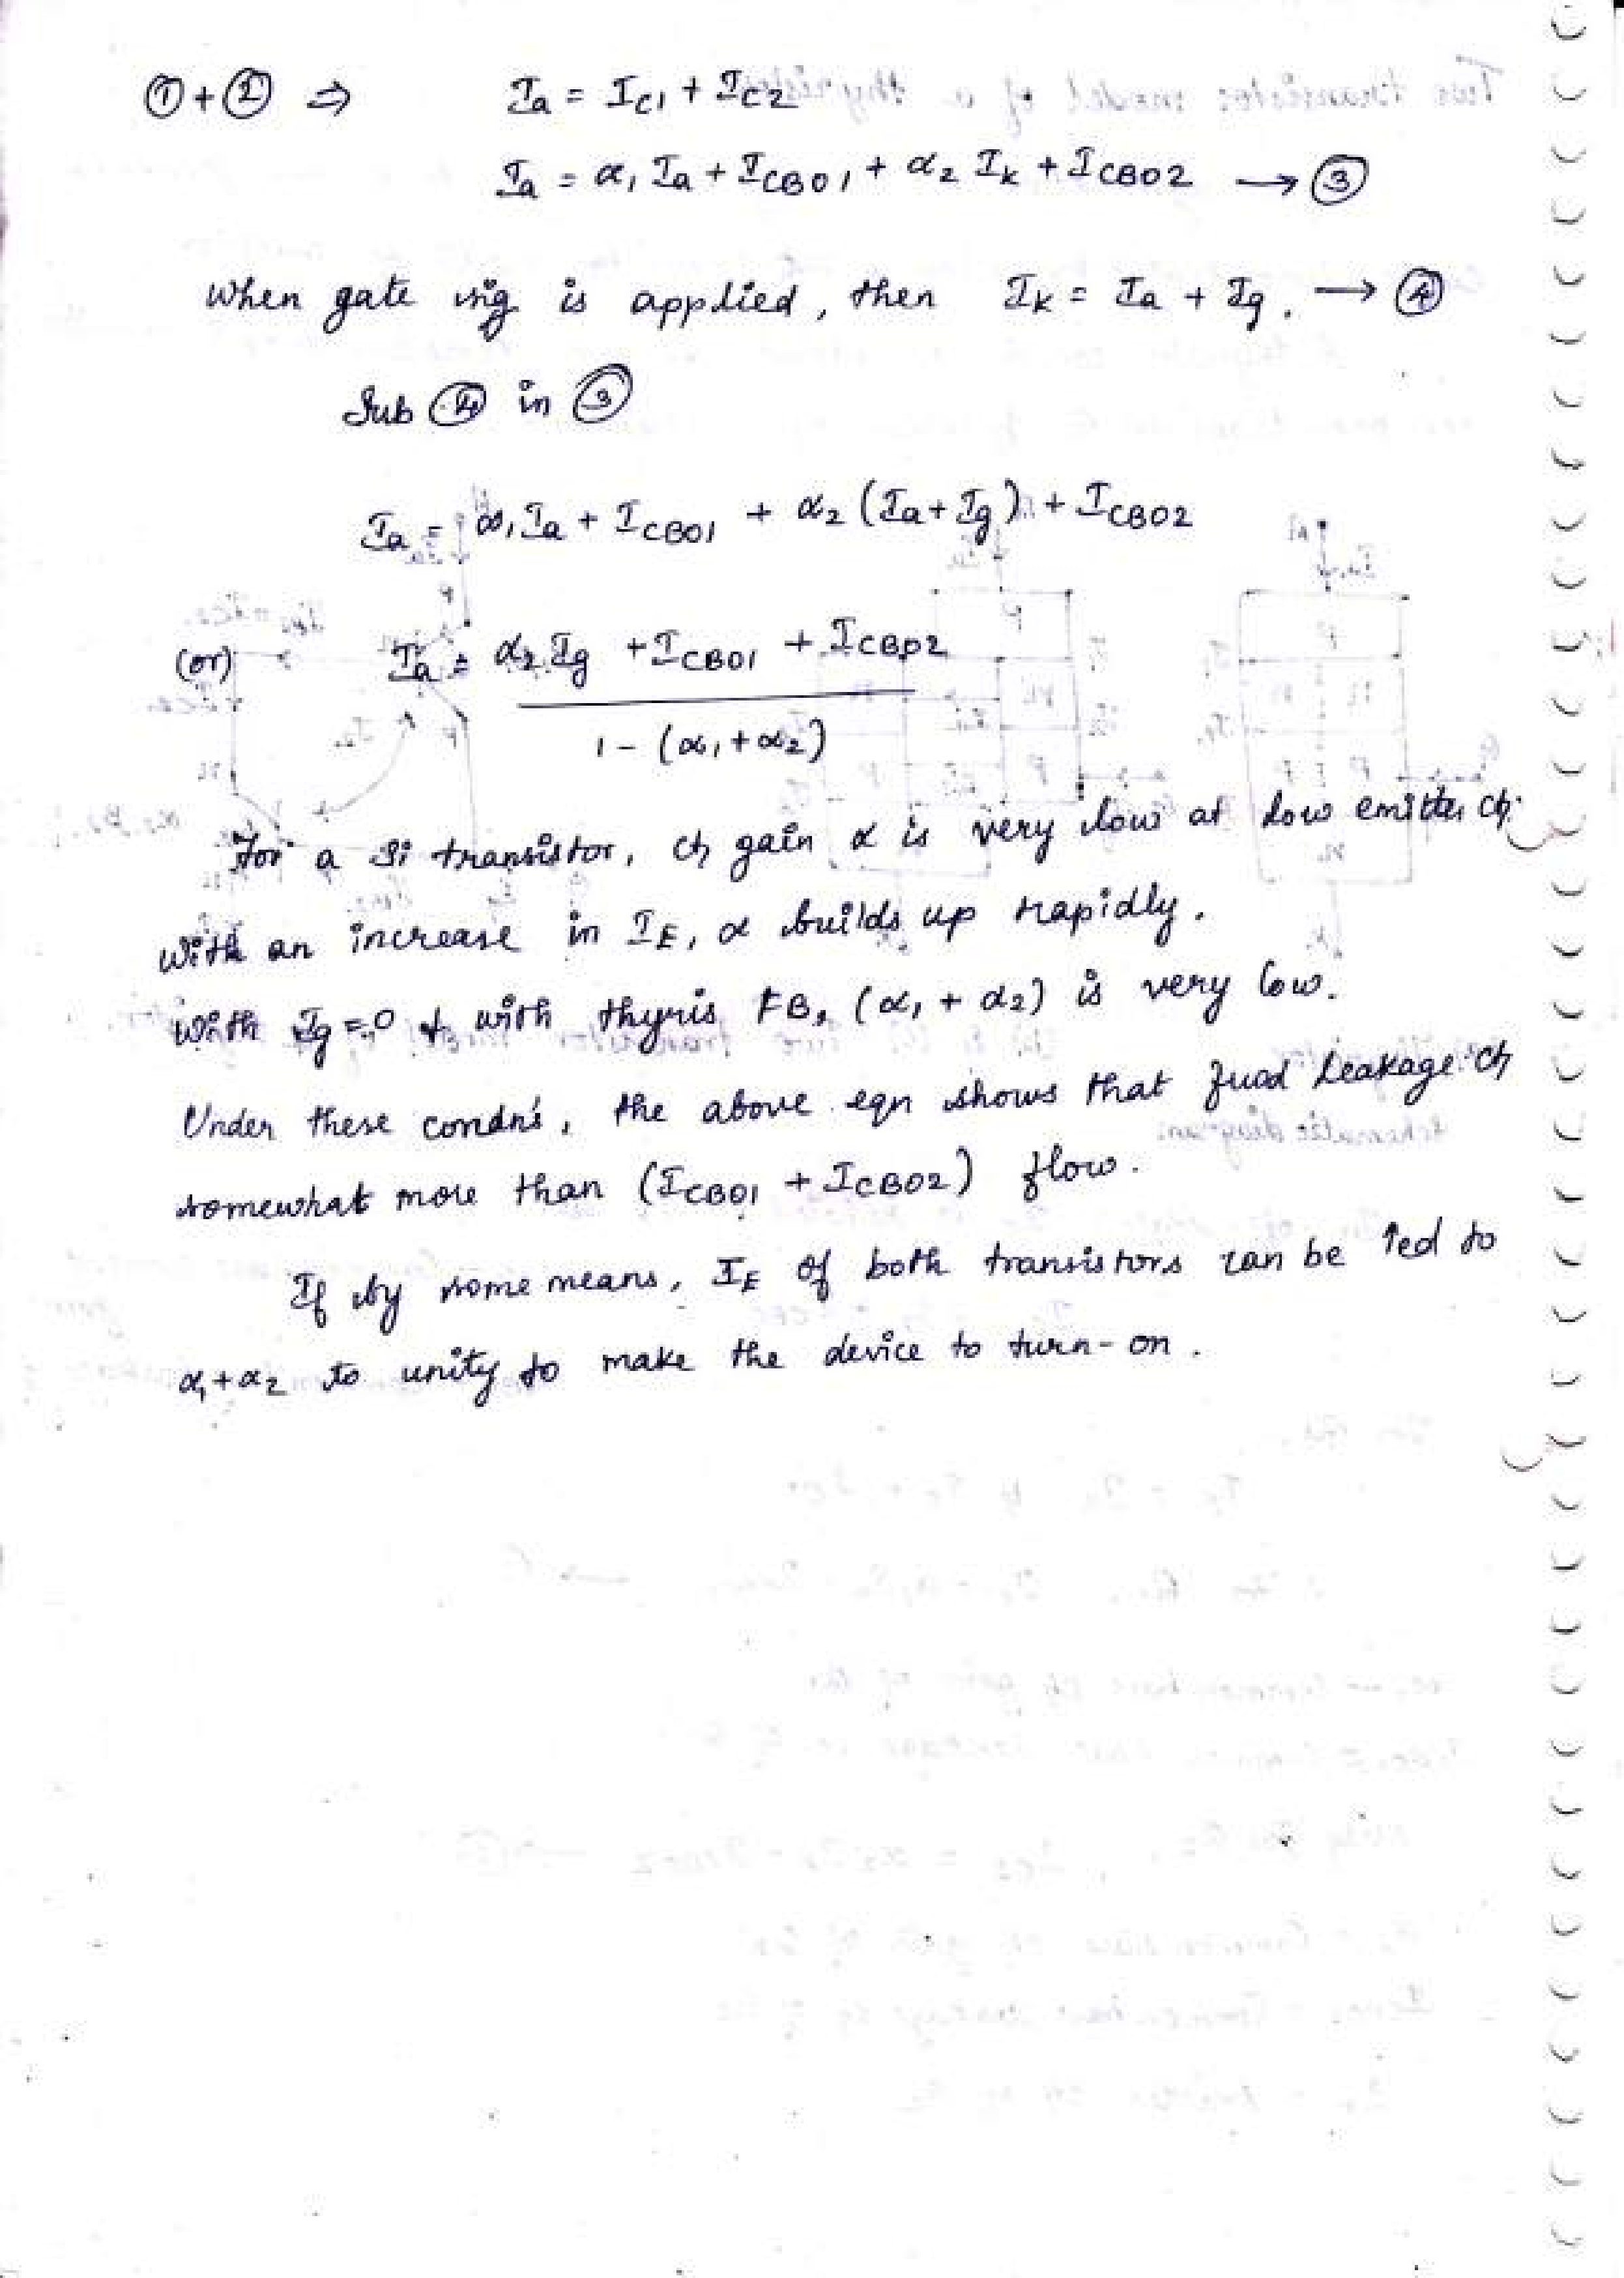 ①+② ⇒ Ia = IC1 + IC2
Ia = α1 Ia + ICBO1 + α2 Ik + ICBO2 → ③
When gate sig is applied, then Ik = Ia + Ig. → ④
Sub ④ in ③
Ia = α1 Ia + ICBO1 + α2 (Ia + Ig) + ICBO2
(or) Ia = α2 Ig + ICBO1 + ICBO2
1 - (α1 + α2)
For a Si transistor, ct gain α is very low at low emitter ct.
With an increase in IE, α builds up rapidly.
With Ig = 0 & with thyris FB, (α1 + α2) is very low.
Under these condn's, the above eqn shows that fwd leakage ct
somewhat more than (ICBO1 + ICBO2) flow.
If by some means, IE of both transistors can be ↑ed to
α1 + α2 to unity to make the device to turn-on.